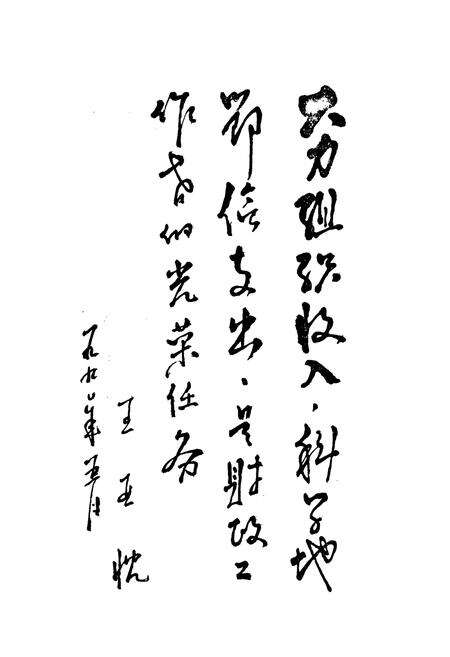 大力组织收入，科学地
支出，是财政工
作者的光荣任务
王亚忱
一九九〇年五月